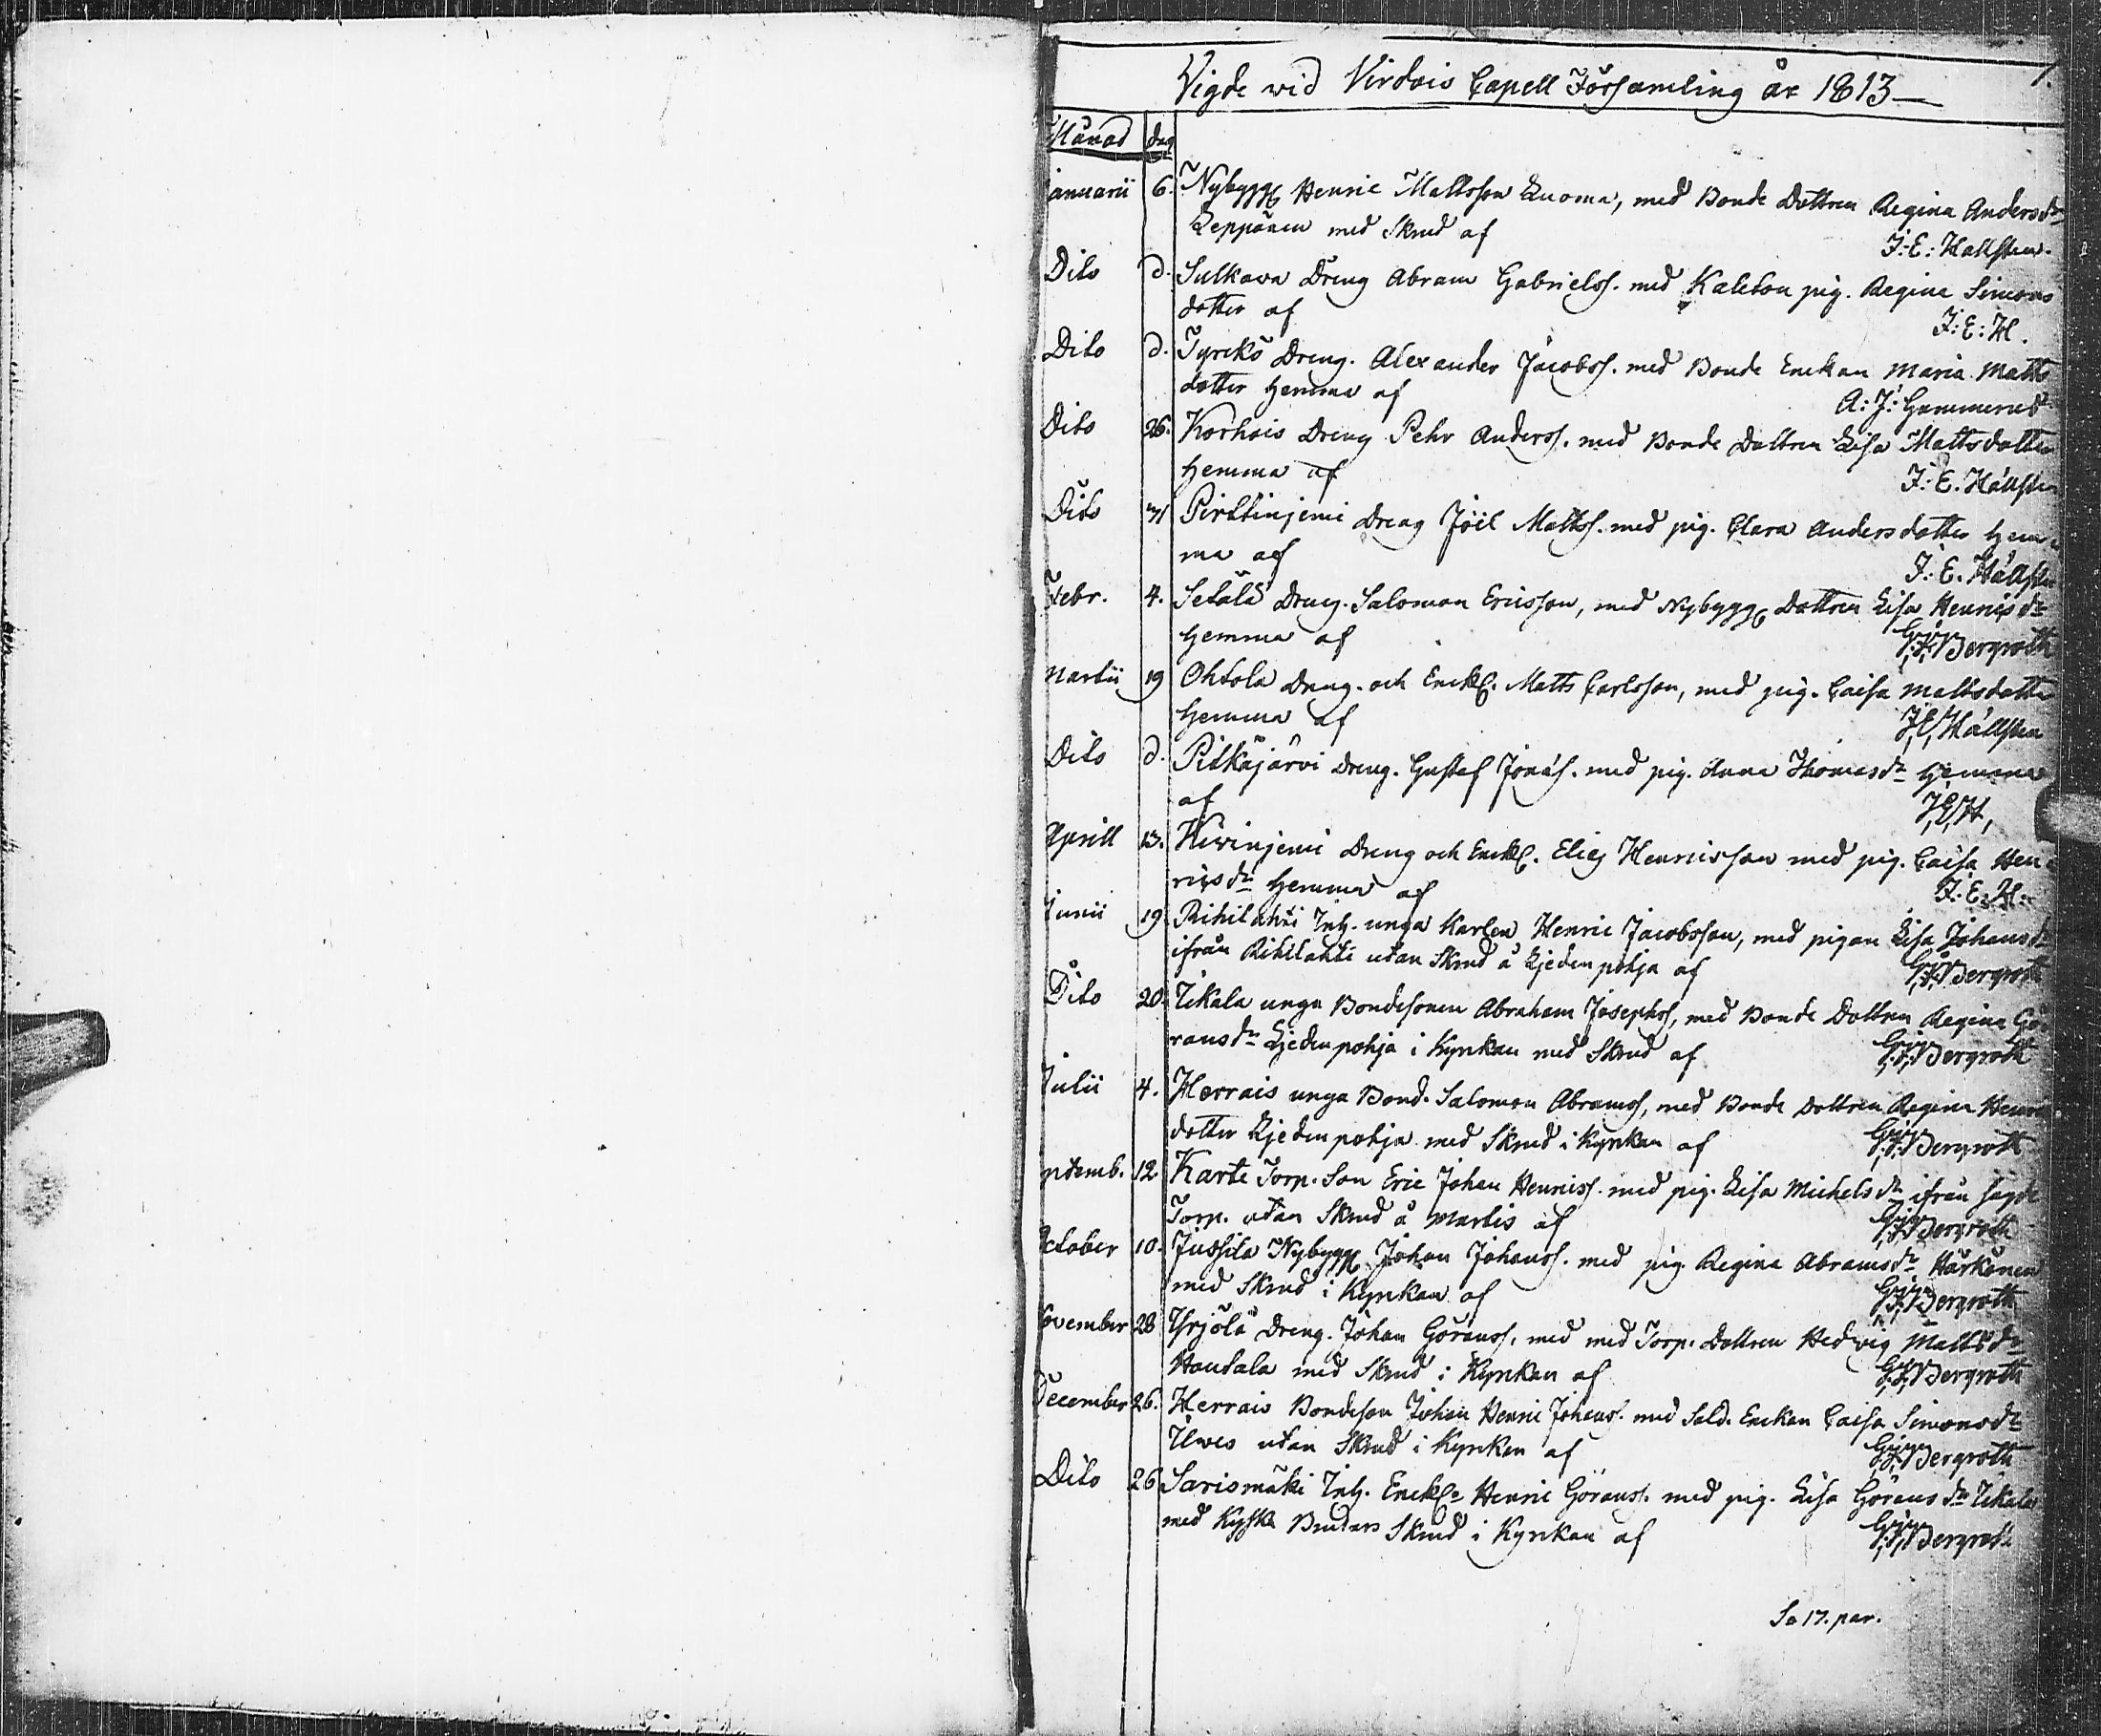 1.
Vigde wid Virdois Capell Församling år 1813—
Månad dag
Januarii 6. Nybygg Henric Mattsson Luoma, med Bonde Dottren Regina Andersdr
Leppänen med Skrud af J: E: Hallsten.
Dito d. Sulkava Dreng Abram Gabrielss. med Kaleton pig. Regina Simons
dotter af J: E: H.
Dito d. Tyrckö Dreng. Alexander Jacobss. med Bonde Enckan Maria Matts
dotter hemma af A: J: Gummerus
Dito 26. Korhois Dreng Pehr Anderss. med Bonde Dottren Lisa Mattsdotter
hemma af J: E. Hällsten
Dito 31 Pirttinjemi Dreng Jöil Mattss. med pig. Clara Andersdotter hem
ma af J: E. Hällsten
Febr. 4. Setälä Dreng. Salomon Ericsson, med Nybygg Dottren Lisa Henricsdr
hemma af G: J: Bergroth
Martii 19 Ohtola Dreng. och Enckl. Matts Carlsson, med pig. Caisa Mattsdotter
hemma af J, E, Hällsten
Dito d. Pitkäjärvi Dreng. Gustaf Jonäs. med pig. Anna Thomasdr hemma
af J, E, H,
Aprill 13. Kivinjemi Dreng och Enckl. Elias Henricsson med pig. Caisa Hen
ricsdr hemma af J: E: H.
Junii 19 Rihilahti Inh. unga Karlen Henric Jacobsson, med pigan Lisa Johansdr
ifrån Rihilahti utan Skrud å Liedenpohja af G: J: Bergroth
Dito 20. Ukala unga Bondesonen Abraham Josephss, med Bonde Dottren Regina Gö
ransdr Liedenpohja i Kyrkan med Skrud af G: J: Bergroth
Julii 4. Herrais unga Bond. Salomon Abramss, med Bonde Dottren Regina Henrics
dotter Liedenpohja med Skrud i Kyrkan af G: J: Bergroth
ptemb. 12 Karte Torp. Son Eric Johan Henricss. med pig. Lisa Michelsdr ifrån sagde
Torp. utan Skrud å Martis af G: J: Bergroth
October 10. Jussila Nybygg Johan Johanss. med pig Regina Abramsdr Härkönen
med Skrud i Kyrkan af G: J: Bergroth
November 28 Yrjölä Dreng. Johan Göranss. med med Torp. Dottren Hedvig Mattsdr
Hautala med Skrud i Kyrkan af G: J: Bergroth
December 26. Herrais Bondeson Johan Henric Johanss. med Sold. Enckan Caisa Simonsdr
Ulves utan Skrud i Kyrkan af G: J: Bergroth
Dito 26 Sarismäki Inh. Enckl. Henric Göranss. med pig. Lisa Göransdr Ukala
med Kyska Brudars Skrud i Kyrkan af G: J: Bergroth
Sa 17. par.